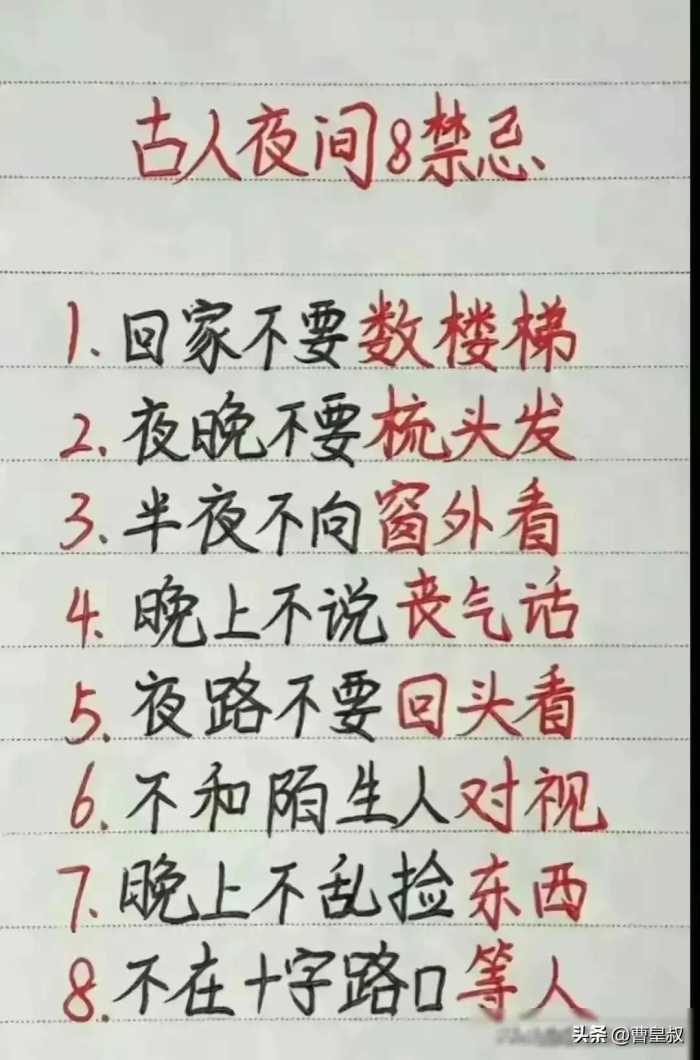 古人夜间8禁忌
1. 回家不要数楼梯
2. 夜晚不要梳头发
3. 半夜不向窗外看
4. 晚上不说丧气话
5. 夜路不要回头看
6. 不和陌生人对视
7. 晚上不乱捡东西
8. 不在十字路口等人
头条 @曹皇叔